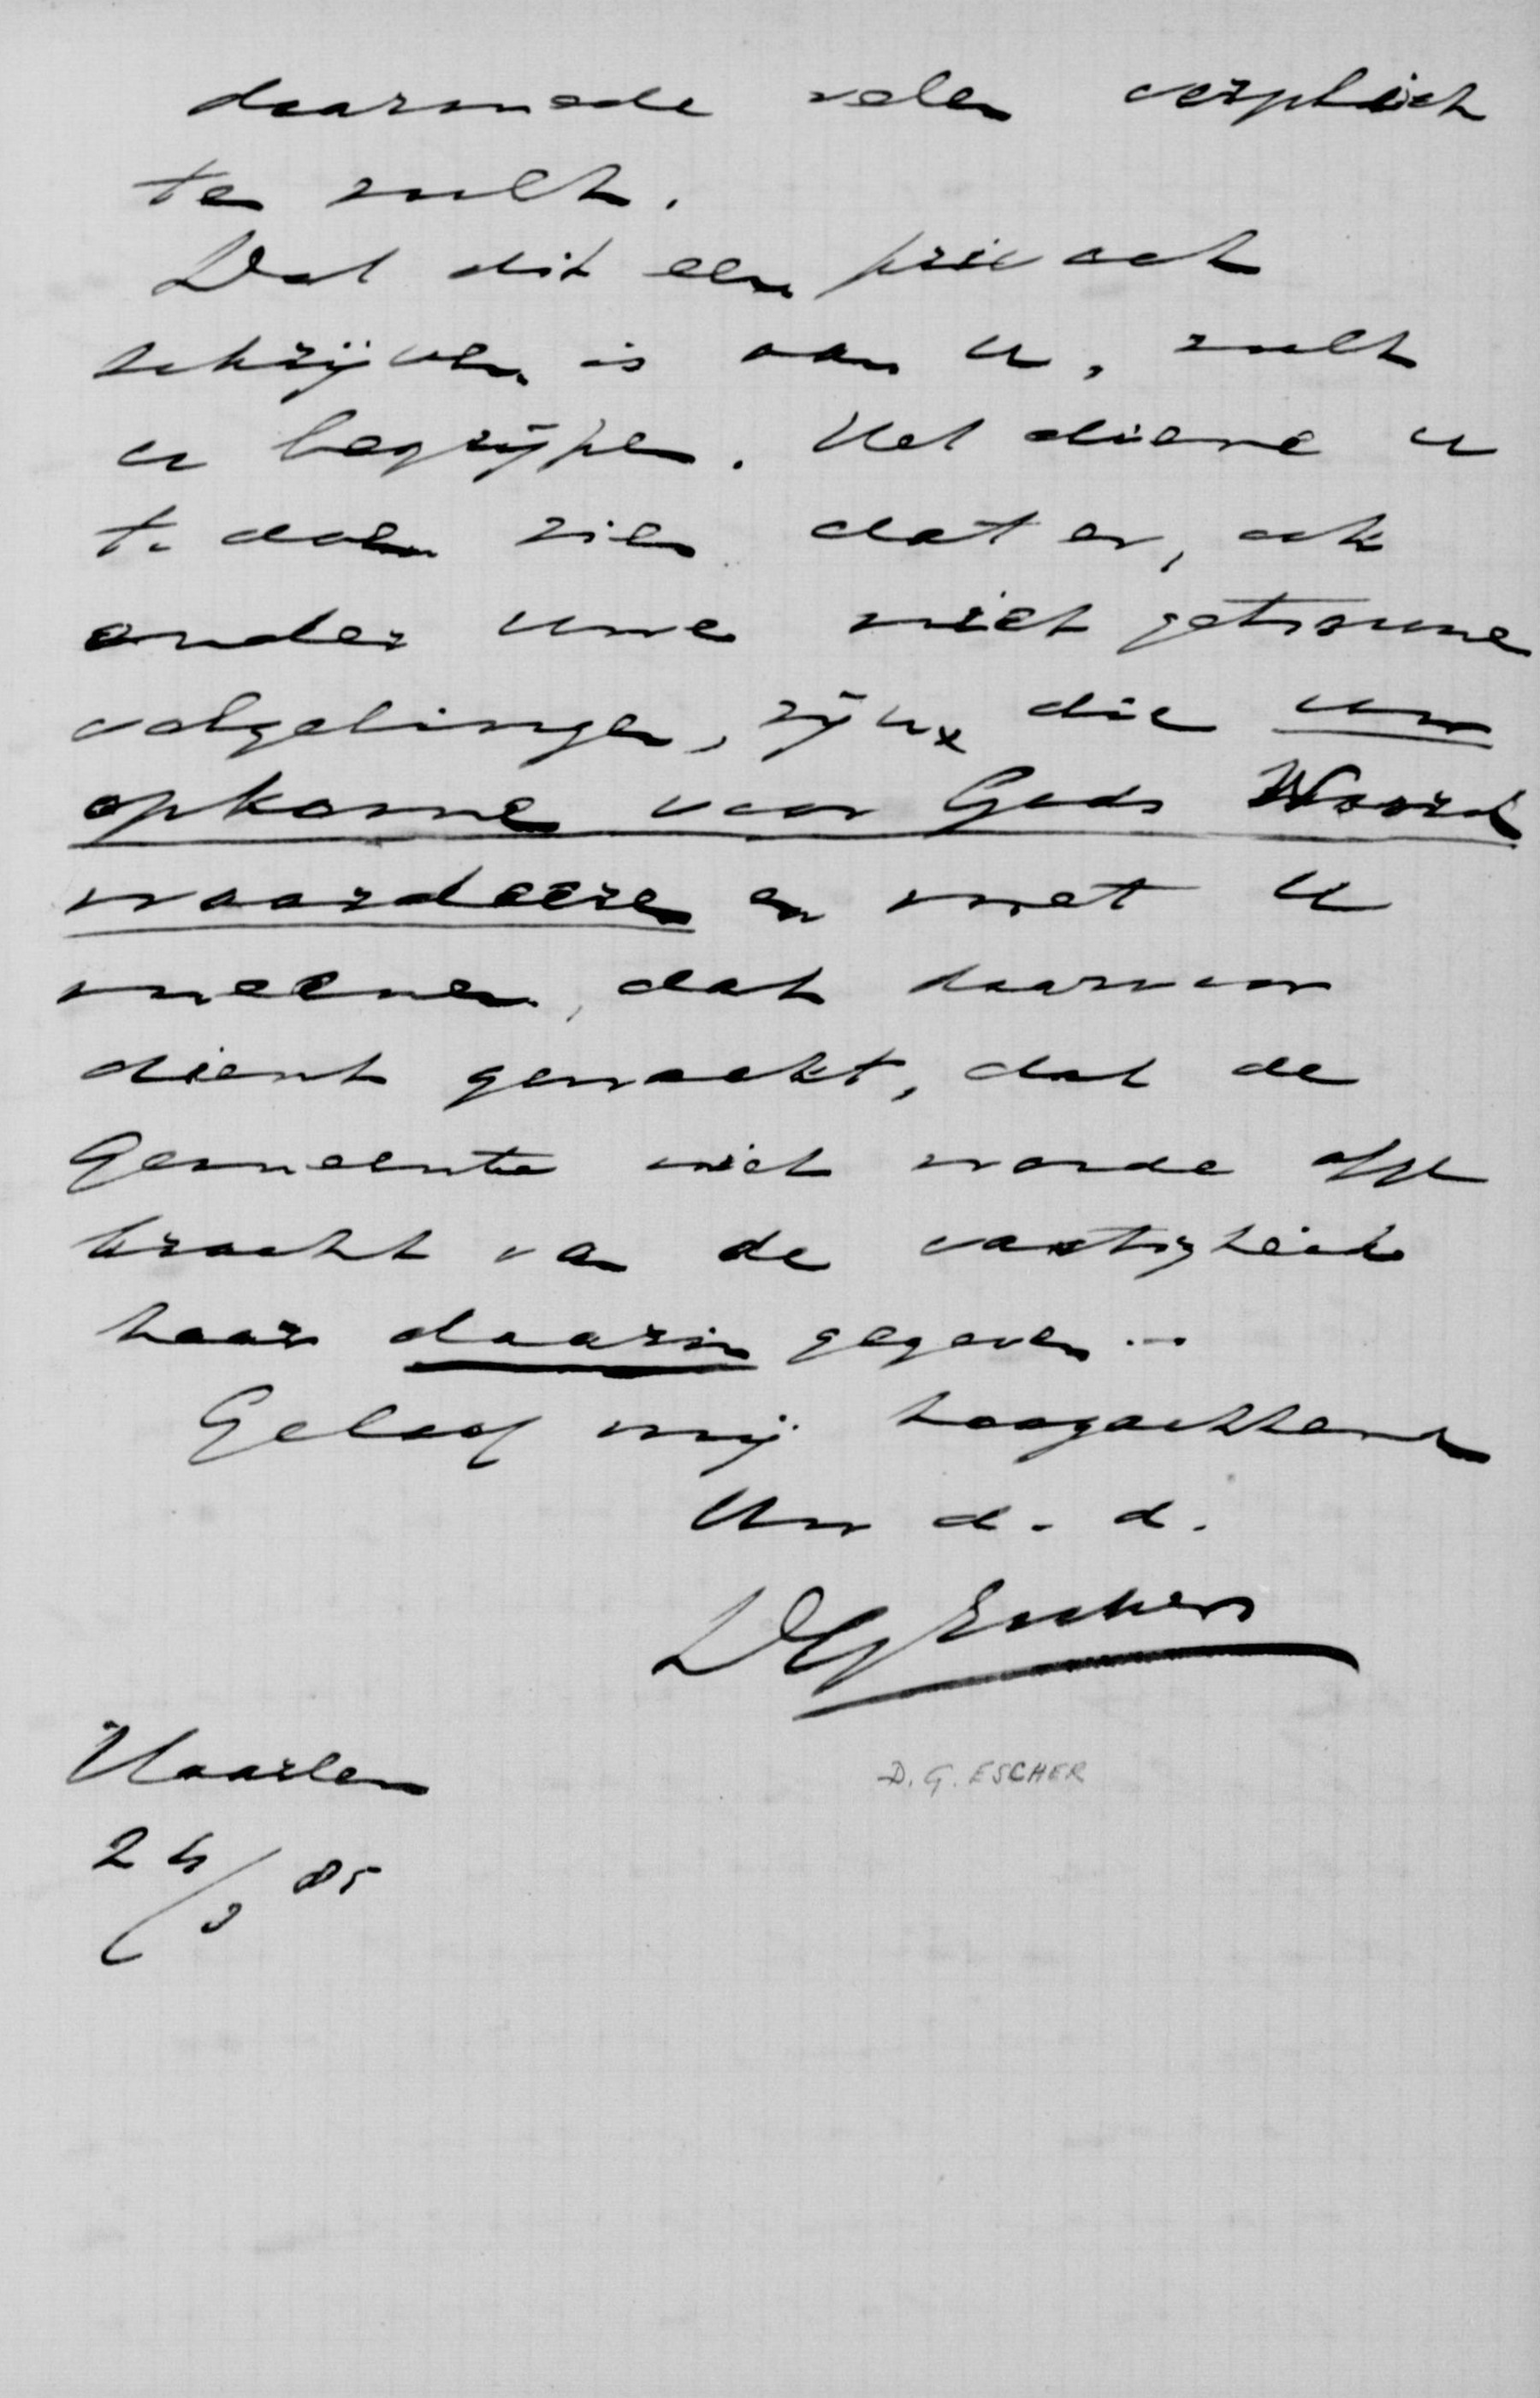 daarmede velen verplicht
te zult.
Dat dit een privaat
schrijven is aan u, zult
u begrijpen. Het diene u
te doen zien dat er, ook
onder uwe niet getrouwe
volgelingen, zijn, die uw
opkomen voor Gods Woord
waardeeren en met u
meenen, dat daarvoor
dient gewaakt, dat de
Gemeente niet worde afge
bracht van de vastigheid
haar daarin gegeven...
Geloof mij hoogachtend
Uw d. d.
DGEscher
D. G. ESCHER
Haarlem
24/3 85